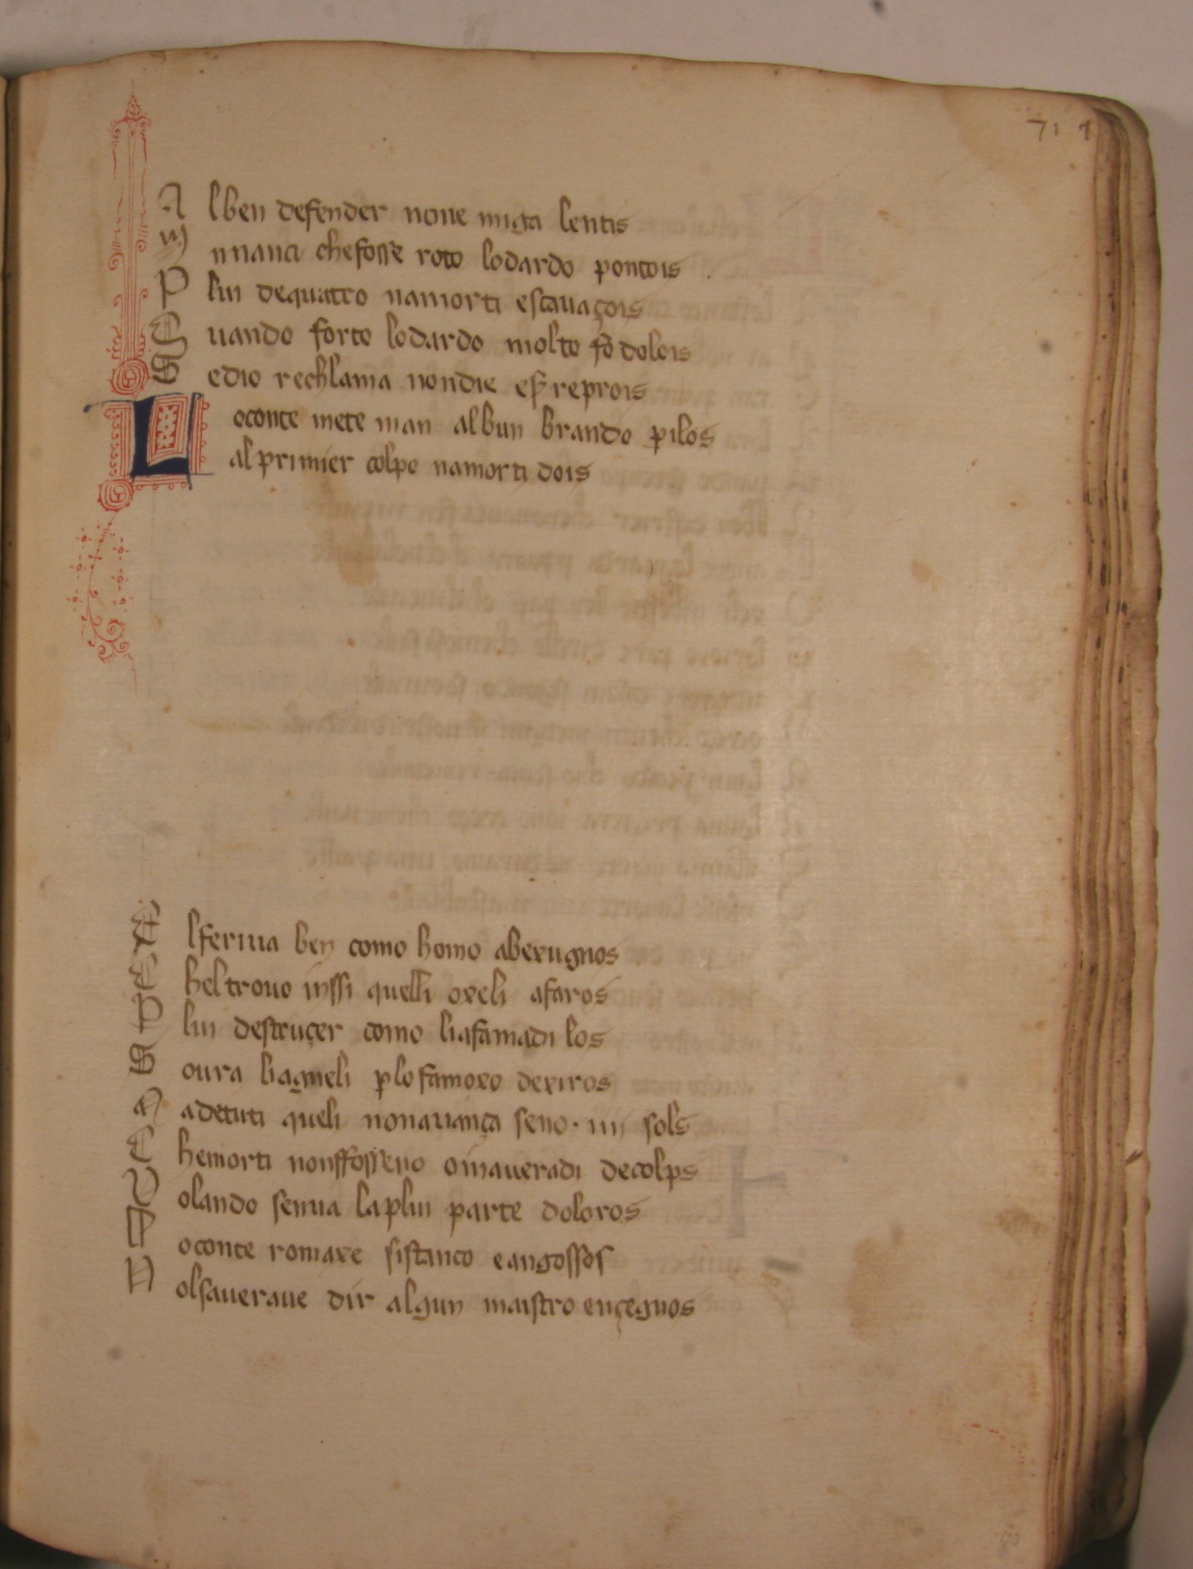 71
A lben defender none miga lentis
In nnanci chefosse roto lodardo pontois
P lui dequatro namorti escavaçois
Q uando forte lodardo molto fo dolois
S edio rechlama nondie eſſ reprois
L oconte mete man albun brando pilos
alprimier colpo namorti dois
E lferiua ben como homo abexugnos
C heltrouo inssi quelli oxeli afaros
P lui destruçer como liafamadi los
S oura liagneli plo famoxo dexiros
A adetuti queli nonauança seno · iiii sols
C hemorti nonffosseno omaueradi decolps
R olando senua laplui parte doloros
L oconte romaxe sistanco eangossos
N olsaueraue dir algun maistro ençegnos